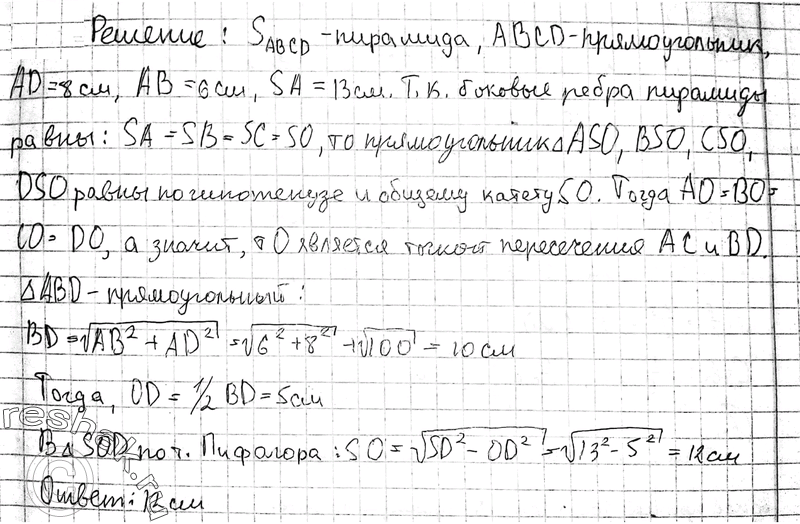 Решение : SABCD -пирамида, ABCD-прямоугольник,
AD=8см, AB=6см, SA=13см. Т.к. боковые ребра пирамиды
равны: SA=SB=SC=SO, то прямоугольник △ ASO, BSO, CSO,
DSO равны по гипотенузе и общему катету SO. Тогда AO=BO=
CO=DO, а значит, т O является точкой пересечения AC и BD.
△ABD-прямоугольный:
BD=√AB²+AD²=√6²+8²+√100=10см
Тогда, OD=1/2 BD=5см
В △ SOD по т. Пифагора : SO=√SD²-OD²=√13²-5²=12см
Ответ: 12см
reshak.ru
©